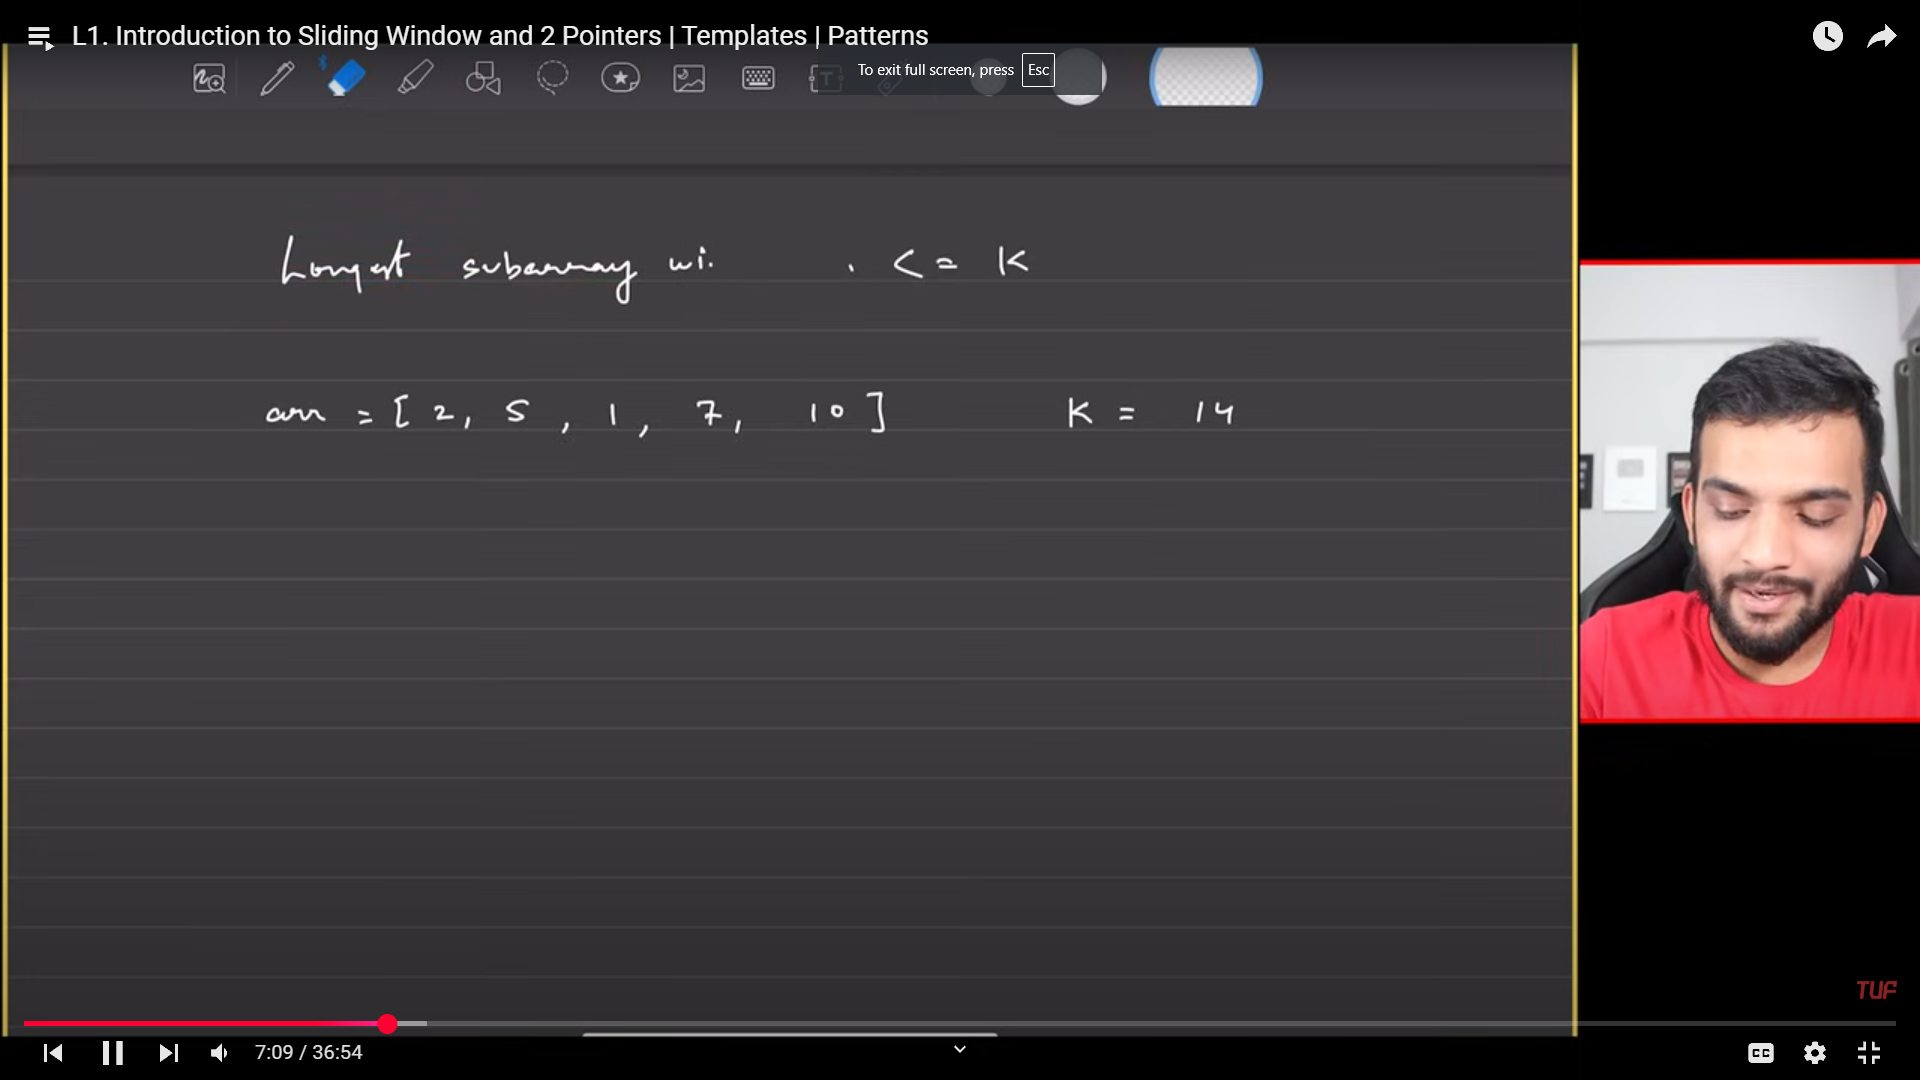 L1. Introduction to Sliding Window and 2 Pointers | Templates | Patterns
To exit full screen, press Esc
Longest subarray wi. . <= K
arr = [ 2, 5 , 1 , 7, 10 ] K = 14
TUF
7:09 / 36:54
CC